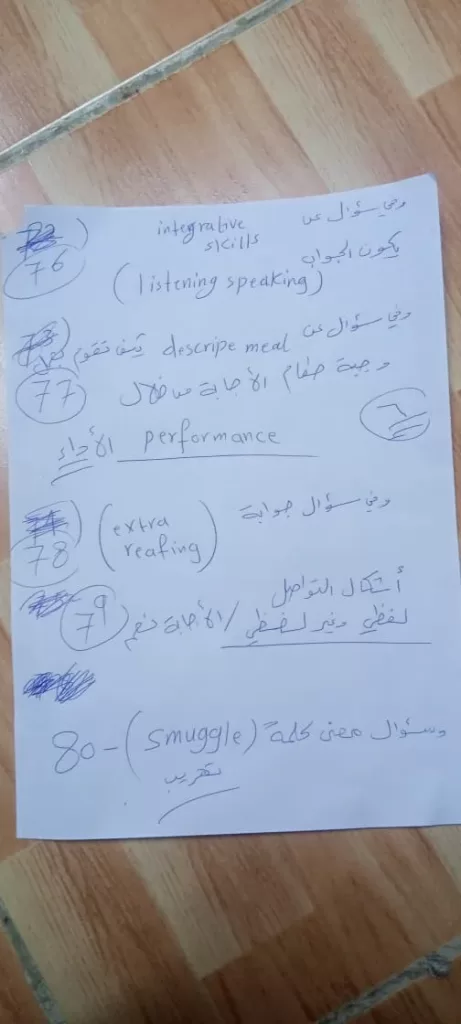 وفي سؤال عن integrative skills
76
يكون الجواب
(listening speaking)
وفي سؤال عن descripe meal كيف تقوم
77
وجبة طعام الأجابة من خلال
performance الأداء
وفي سؤال جوابة
78 (extra reafing)
أشكال التواصل
79 لفظي وغير لفظي / الأجابة نعم
80 - (smuggle) وسؤال معنى كلمة
تهريب